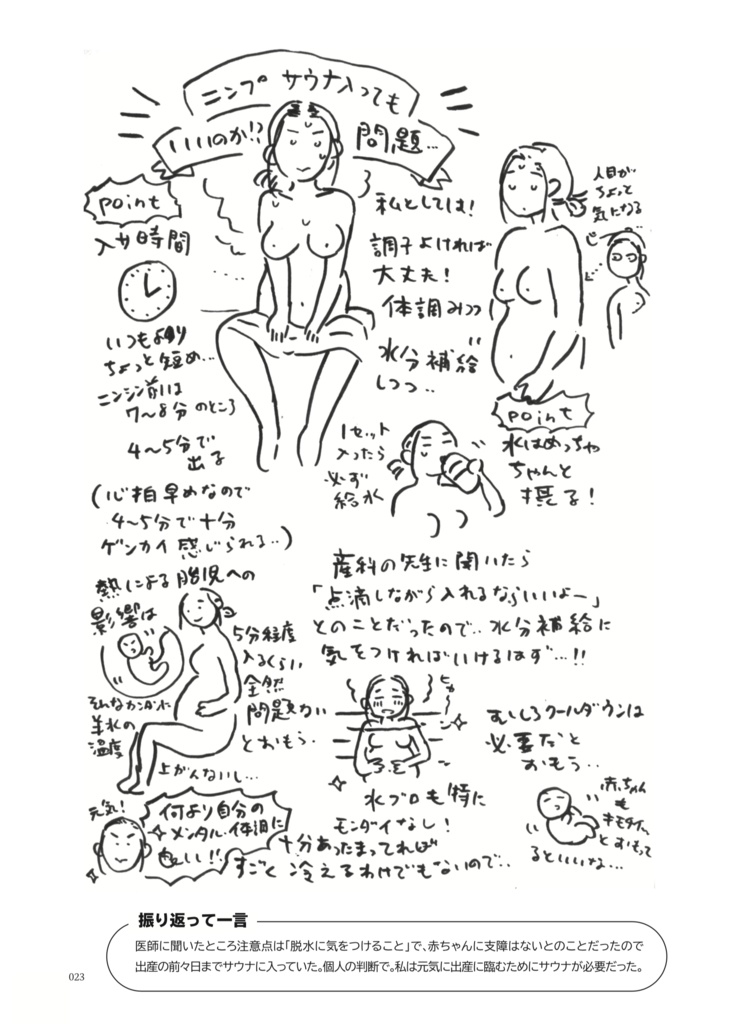 ニンプ サウナ入っても
いいのか!? 問題…
point
入サ時間
いつもより
ちょっと短め…
ニンシン前は
7〜8分のところ
4〜5分で
出る
(心拍早めなので
4〜5分で十分
ゲンカイ感じられる..)
私としては!
調子よければ
大丈夫!
体調みつつ
水分補給
しつつ..
人目が
ちょっと
気になる
point
水はめっちゃ
ちゃんと
摂る!
1セット
入ったら
必ず
給水
産科の先生に聞いたら
「点滴しながら入れるならいいよー」
とのことだったので..水分補給に
気をつければいけるはず…!!
熱による胎児への
影響は
5分程度
入るくらい
全然
問題ない
とおもう.
そんなカンタンに
羊水の
温度
上がんないし…
水ブロも特に
モンダイなし!
十分あったまってれば
すごく冷えるわけでもないので..
むしろクールダウンは
必要だと
おもう..
赤ちゃん
も
キモチイイ
とおもって
るといいな…
元気!
何より自分の
メンタル・体調に
よい!!
振り返って一言
医師に聞いたところ注意点は「脱水に気をつけること」で、赤ちゃんに支障はないとのことだったので
出産の前々日までサウナに入っていた。個人の判断で。私は元気に出産に臨むためにサウナが必要だった。
023